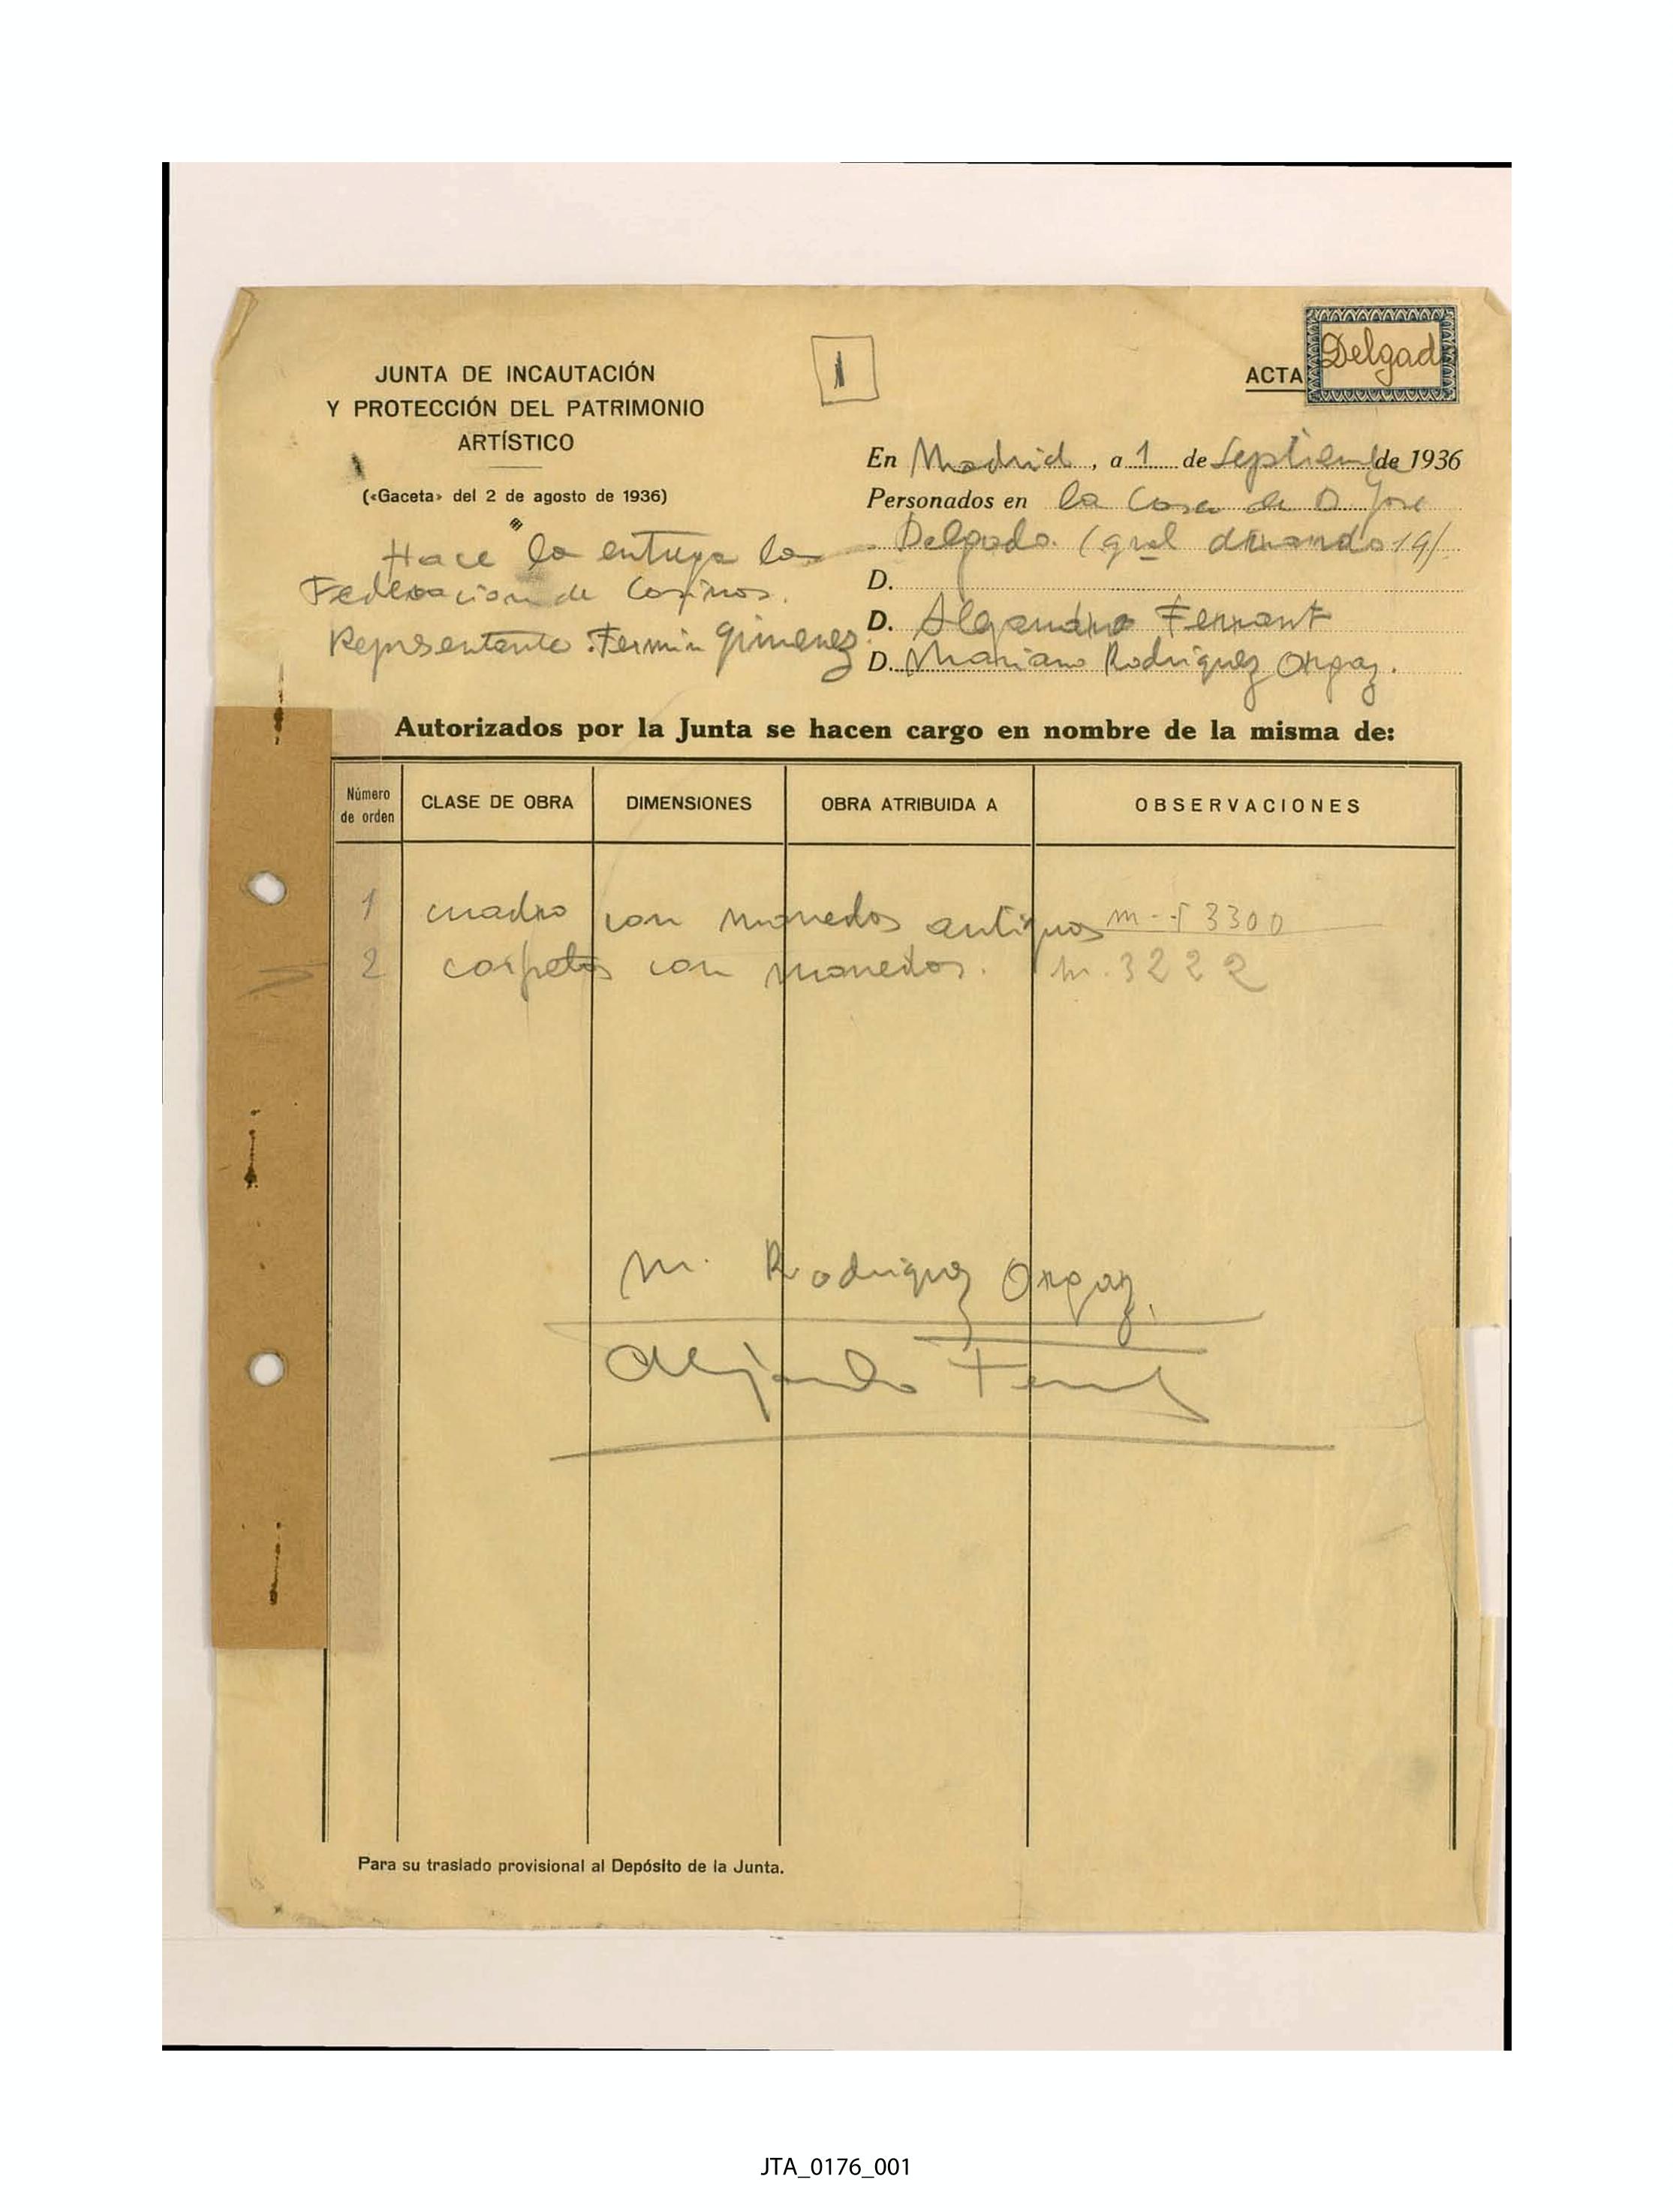 JUNTA DE INCAUTACIÓN
Y PROTECCIÓN DEL PATRIMONIO
ARTÍSTICO
(«Gaceta» del 2 de agosto de 1936)
1
ACTA
Delgad
En Madrid, a 1 de Septiembre de 1936
Personados en la Casa de D. Jose
Delgado. (gral
D.
D. Alejandro Ferrant
D. Mariano Rodriguez Orgaz.
Hace la entrega la
Federacion de Casinos.
Representante Fermin Gimenez.
Autorizados por la Junta se hacen cargo en nombre de la misma de:
Número de orden
CLASE DE OBRA
DIMENSIONES
OBRA ATRIBUIDA A
OBSERVACIONES
1 cuadro con monedas antiguas 3300
2 carpetas con monedas. m. 3222
M. Rodriguez Orgaz.
Alejandro Ferrant
Para su traslado provisional al Depósito de la Junta.
JTA_0176_001